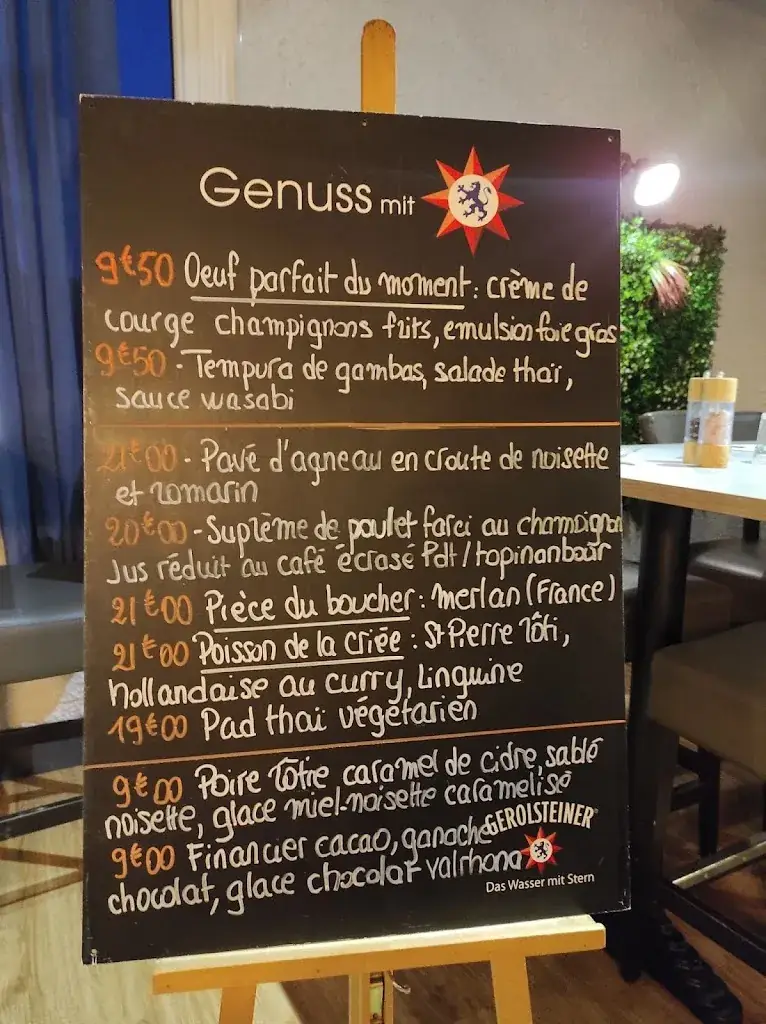 Genuss mit
9€50 Oeuf parfait du moment : crème de
courge champignons frits, emulsion foie gras
9€50 - Tempura de gambas, salade thaï,
sauce wasabi
21€00 - Pavé d'agneau en croute de noisette
et romarin
20€00 - Suprème de poulet farci au champignon
Jus réduit au café écrasé Pdt / topinanbour
21€00 Pièce du boucher : merlan (France)
21€00 Poisson de la criée : St Pierre rôti,
hollandaise au curry, Linguine
19€00 Pad thaï végétarien
9€00 Poire rôtie caramel de cidre, sablé
noisette, glace miel-noisette caramelisé
9€00 Financier cacao, ganache
chocolat, glace chocolat valrhona
GEROLSTEINER
Das Wasser mit Stern